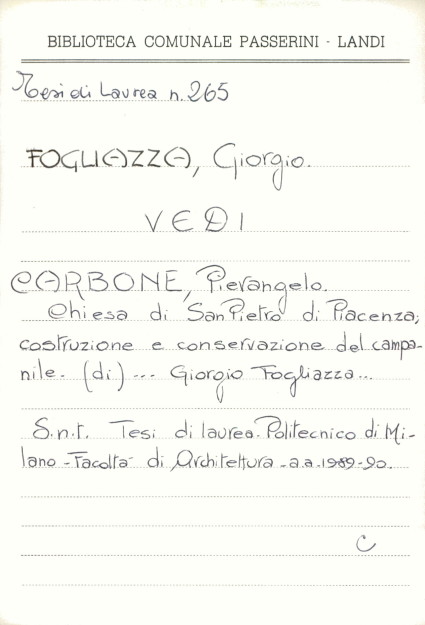 BIBLIOTECA COMUNALE PASSERINI - LANDI
Tesi di Laurea n. 265
FOGLIAZZA, Giorgio.
VEDI
CARBONE, Pierangelo.
Chiesa di San Pietro di Piacenza;
costruzione e conservazione del campa-
nile. (di) ... Giorgio Fogliazza...
S.n.t. Tesi di laurea. Politecnico di Mi-
lano - Facoltà di Architettura - a.a. 1989-90.
C